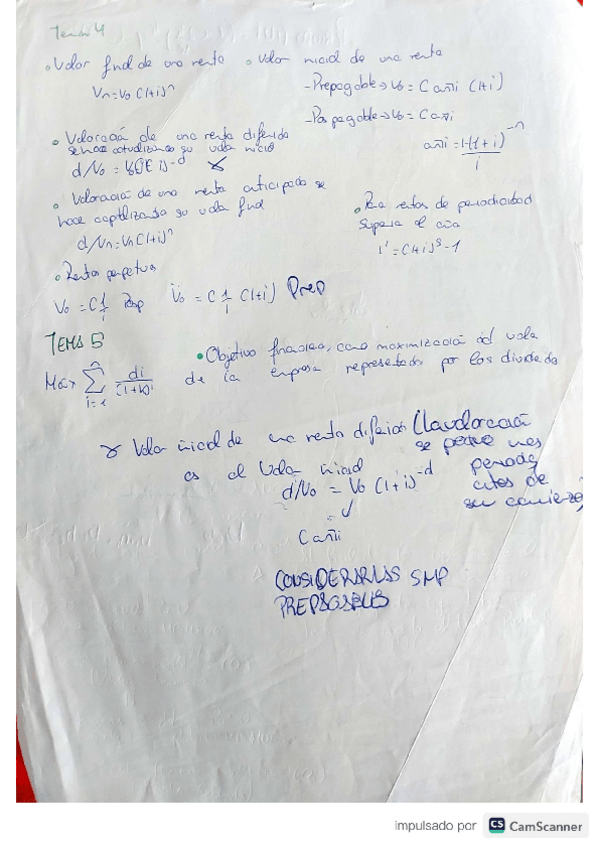 Tema 4
• Valor final de una renta • Valor inicial de una renta
Vn = Vo (1+i)^n
- Prepagable → Vo = C añi (1+i)
- Pospagable → Vo = C añi
añi = 1-(1+i)^-n / i
• Valoración de una renta diferida
se hace actualizando su valor inicio
d/Vo = Vo (1+i)^-d
• Valoración de una renta anticipada se
hace capitalizando su valor final
d/Vn = Vn (1+i)^n
• Para rentas de periodicidad
superior al año
i' = (1+i)^s - 1
• Rentas perpetuas
Vo = C 1/i Posp V̈o = C 1/i (1+i) Prep
TEMA 5
• Objetivo financiero, como maximización del valor
de la empresa representado por los dividendos
Max Σ n i=1 di / (1+k)^i
Valor inicial de una renta diferida (La valoración
se pe que unos
es el Valor inicial
periodos
d/Vo = Vo (1+i)^-d
antes de
su comienzo
C añi
CONSIDERARLAS SMP
PREPAGABLES
impulsado por CS CamScanner